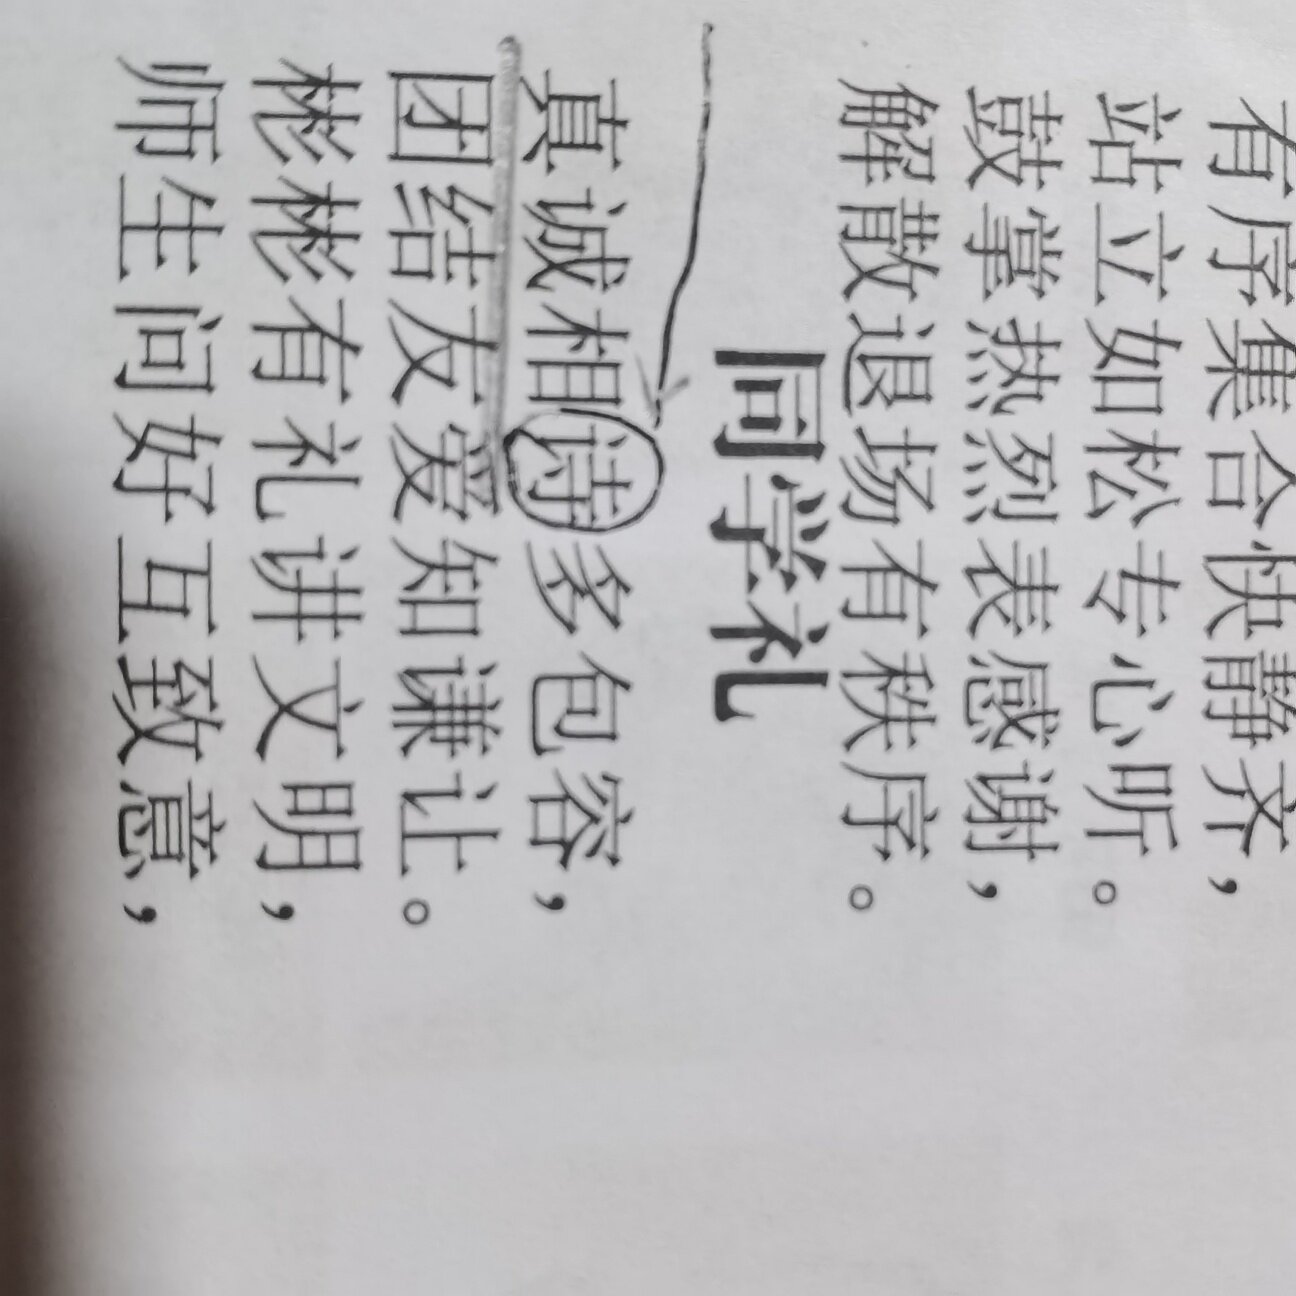 有序集合快静齐，
站立如松专心听。
鼓掌热烈表感谢，
解散退场有秩序。
同学礼
真诚相诗多包容，
团结友爱知谦让。
彬彬有礼讲文明，
师生问好互致意，